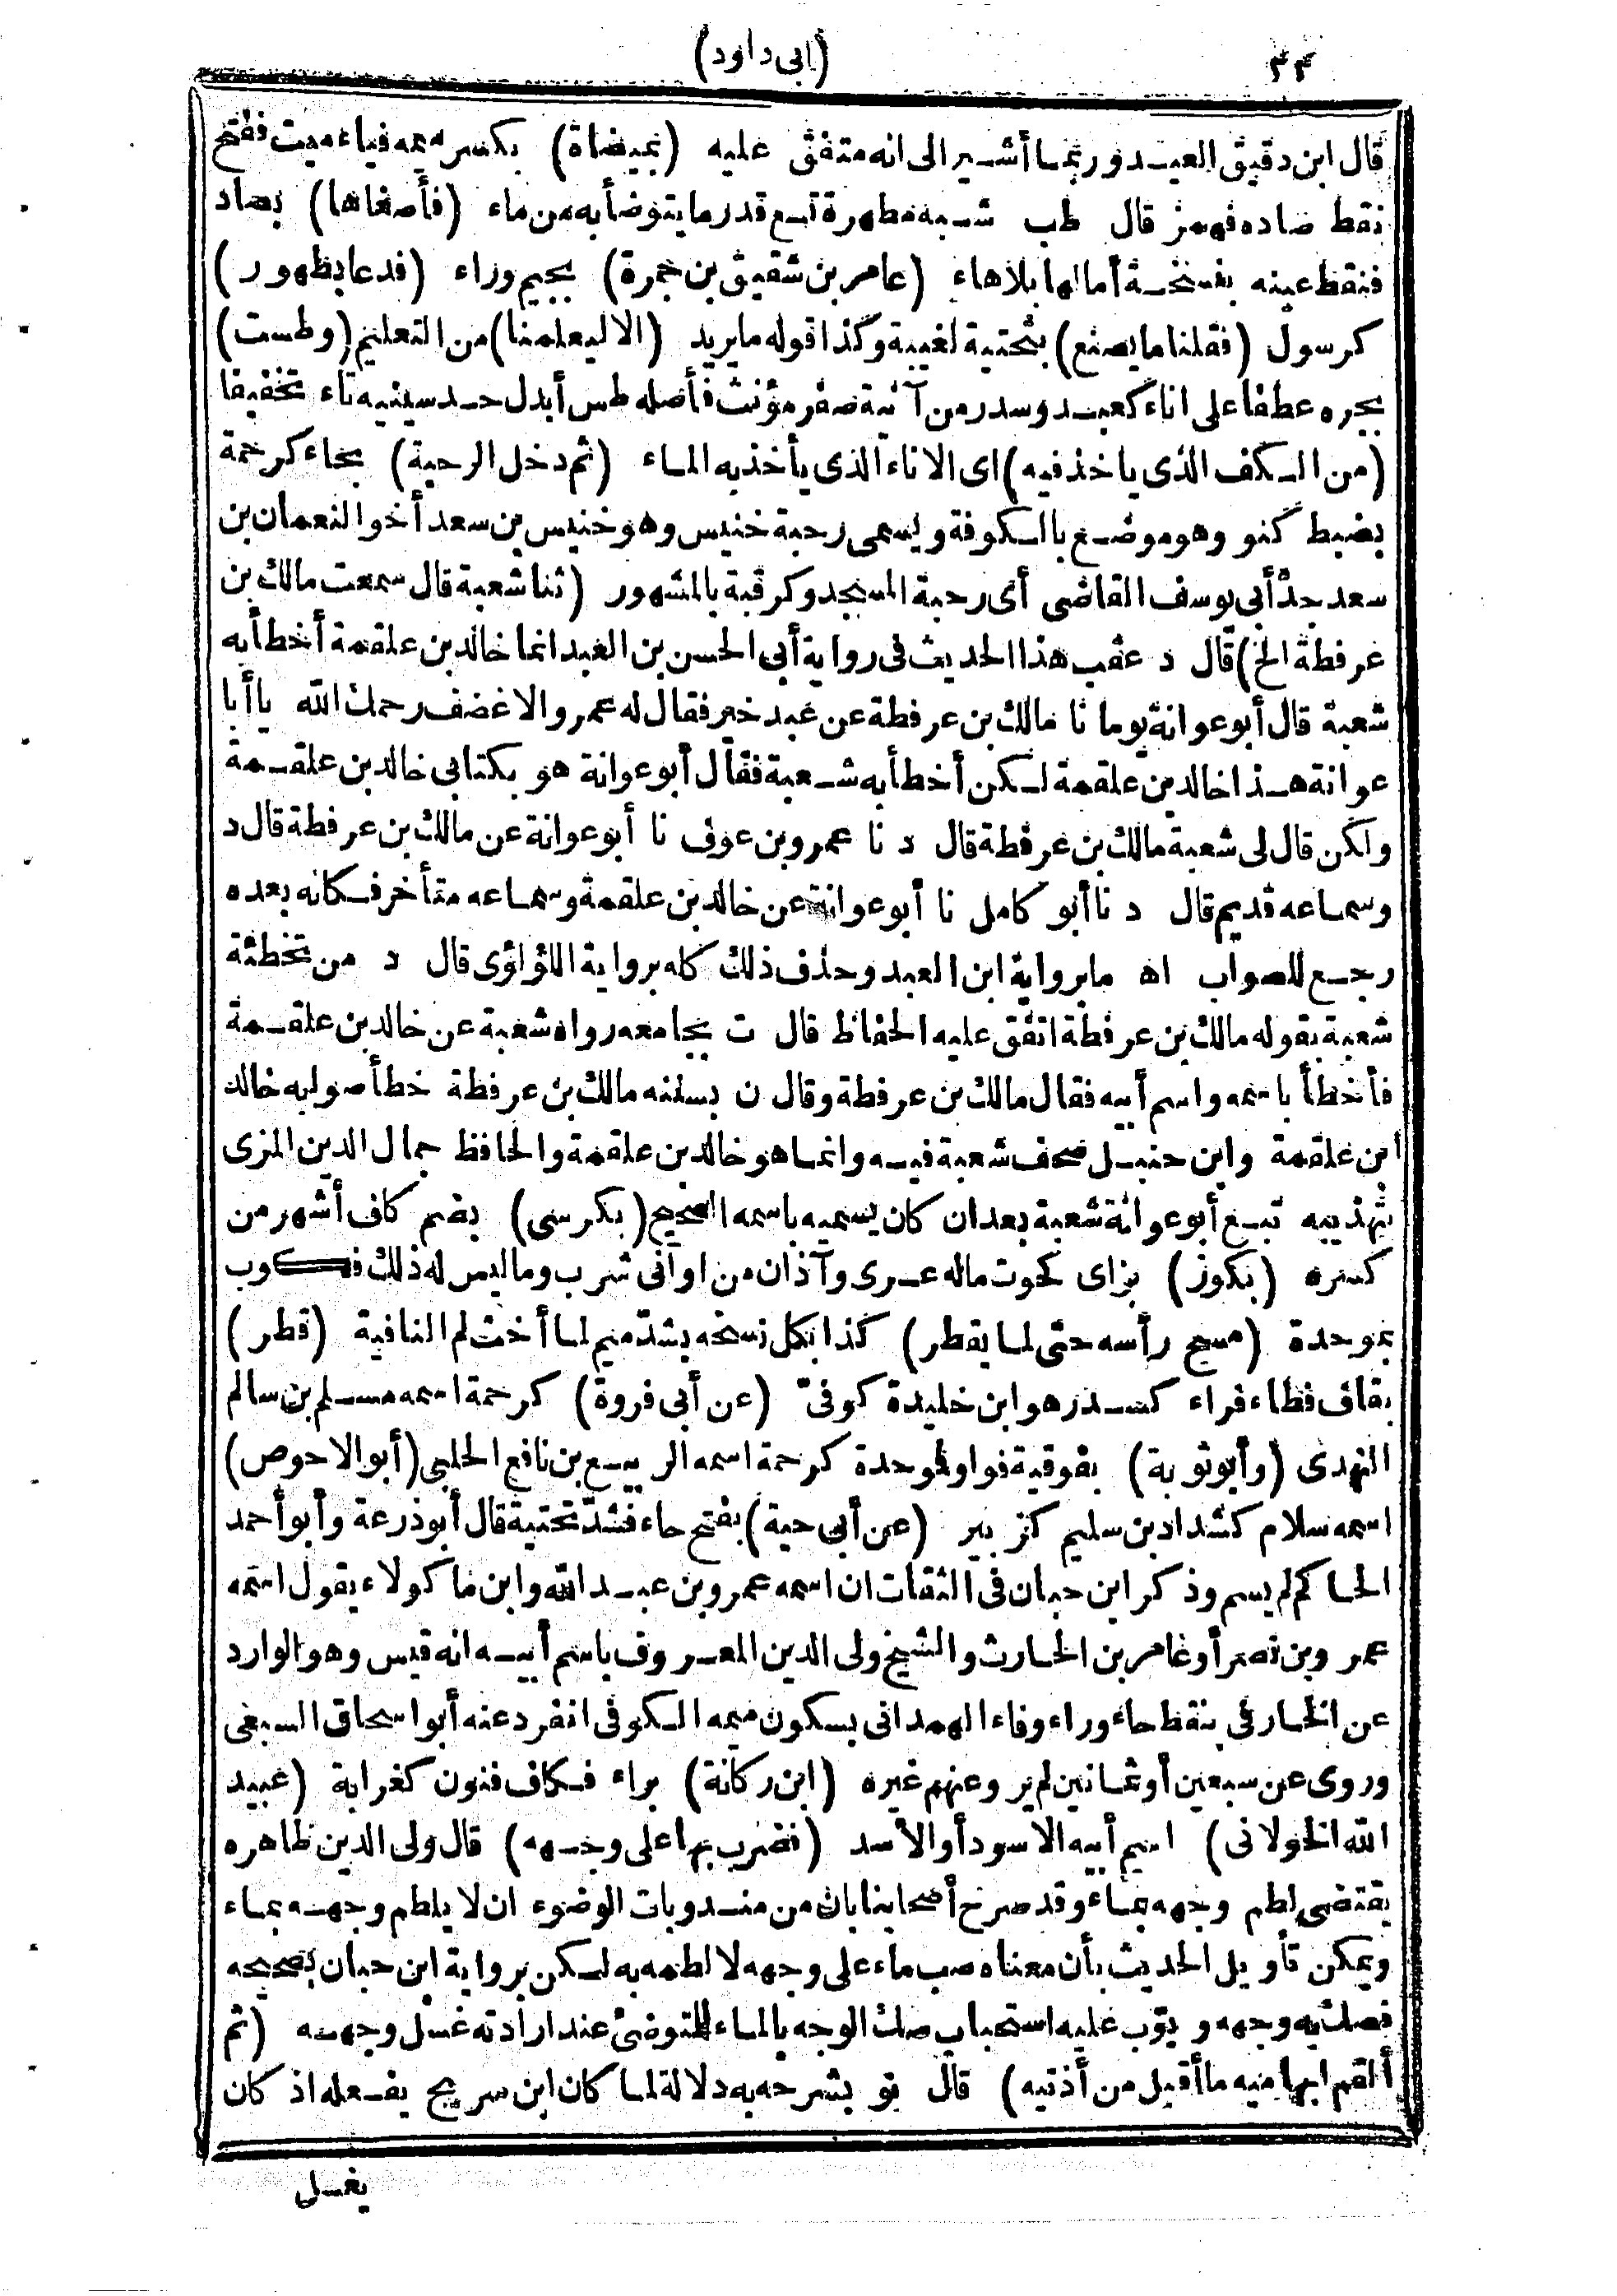 ٤٤
(ابى داود)
قال ابن دقيق العيد وربما أشير الى انه متفق عليه (بميضاة) بكسر ميمه فياء ميت ففتح
نقط ضاده فهمز قال طب شبه مطهرة تسع قدر ما يتوضأ به من ماء (فأصغاها) بصاد
فنقط عينه بفتحة أمالها بلا هاء (عامر بن شقيق بن جمرة) بجيم وراء (فدعا بطهور)
كرسول (فقلنا ما يصنع) بتحتية لغيبة وكذا قوله ما يريد (الا ليعلمنا) من التعليم (وطست)
بجره عطفا على اناء كعبد وسدر من آنية صفر مؤنث فأصله طس أبدل حد سينيه تاء تخفيفا
(من الكف الذى ياخذ فيه) اى الاناء الذى يأخذ به الماء (ثم دخل الرحبة) بحاء كرحمة
بضبط كنو وهو موضع بالكوفة ويسمى رحبة خنيس وهو خنيس بن سعد أخو النعمان بن
سعد جدّ أبى يوسف القاضى أى رحبة المسجد وكرقبة بالمشهور (ثنا شعبة قال سمعت مالك بن
عرفطة الخ) قال د عقب هذا الحديث فى رواية أبى الحسن بن العبد انما خالد بن علقمة أخطأ به
شعبة قال أبو عوانة يوما نا مالك بن عرفطة عن عبد خير فقال له عمرو الاغضف رحمك الله يا أبا
عوانة هذا خالد بن علقمة لكن أخطأ به شعبة فقال أبو عوانة هو بكتابى خالد بن علقمة
ولكن قال لى شعبة مالك بن عرفطة قال د نا عمرو بن عوف نا أبو عوانة عن مالك بن عرفطة قال د
وسماعه قديم قال د نا أبو كامل نا أبو عوانة عن خالد بن علقمة وسماعه متأخر فكانه بعده
رجع للصواب اه ما برواية ابن العبد وحذف ذلك كله برواية اللؤلؤى قال د من تخطئة
شعبة بقوله مالك بن عرفطة اتفق عليه الحفاظ قال ت بجامعه رواه شعبة عن خالد بن علقمة
فأخطأ باسمه واسم أبيه فقال مالك بن عرفطة وقال ن بسننه مالك بن عرفطة خطأ صوابه خالد
ابن علقمة وابن حنبل صحف شعبة فيه وانما هو خالد بن علقمة والحافظ جمال الدين المزى
بتهذيبه تبع أبو عوانة شعبة بعد ان كان يسميه باسمه الصحيح (بكرسى) بضم كاف أشهر من
كسره (بكوز) بزاى كحوت ماله عرى وآذان من اوانى شرب وما ليس له ذلك فكوب
بموحدة (مسح رأسه حتى لما يقطر) كذا بكل نسخه بشدّ ميم لما أخت لم النافية (قطر)
بقاف فطاء فراء كسدر هو ابن خليدة كوفىّ (عن أبى فروة) كرحمة اسمه مسلم بن سالم
النهدى (وأبو توبة) بفوقية فواو فموحدة كرحمة اسمه الربيع بن نافع الحلبى (أبو الاحوص)
اسمه سلام كشداد بن سليم كزبير (عن أبى حية) بفتح حاء فشدّ تحتية قال أبو زرعة وأبو أحمد
الحاكم لم يسم وذكر ابن حبان فى الثقات ان اسمه عمرو بن عبد الله وابن ماكولاء يقول اسمه
عمرو بن نصر أو عامر بن الحارث والشيخ ولى الدين المعروف باسم أبيه انه قيس وهو الوارد
عن الخارفى بنقط خاء وراء وفاء الهمدانى بسكون ميمه الكوفى انفرد عنه أبو اسحاق السبعى
وروى عن سبعين أو ثمانين لم يرو عنهم غيره (ابن ركانة) براء فكاف فنون كغرابة (عبيد
الله الخولانى) اسم أبيه الاسود أو الأسد (فضرب بها على وجهه) قال ولى الدين ظاهره
يقتضى لطم وجهه بماء وقد صرح أصحابنا بان من مندوبات الوضوء ان لا يلطم وجهه بماء
ويمكن تأويل الحديث بأن معناه صب ماء على وجهه لا لطمه به لكن برواية ابن حبان بصحيحه
فصك به وجهه وبوّب عليه استحباب صك الوجه بالماء للمتوضئ عند ارادته غسل وجهه (ثم
ألقم ابهاميه ما أقبل من أذنيه) قال نو بشرحه به دلالة لما كان ابن سريج يفعله اذ كان
يغسل